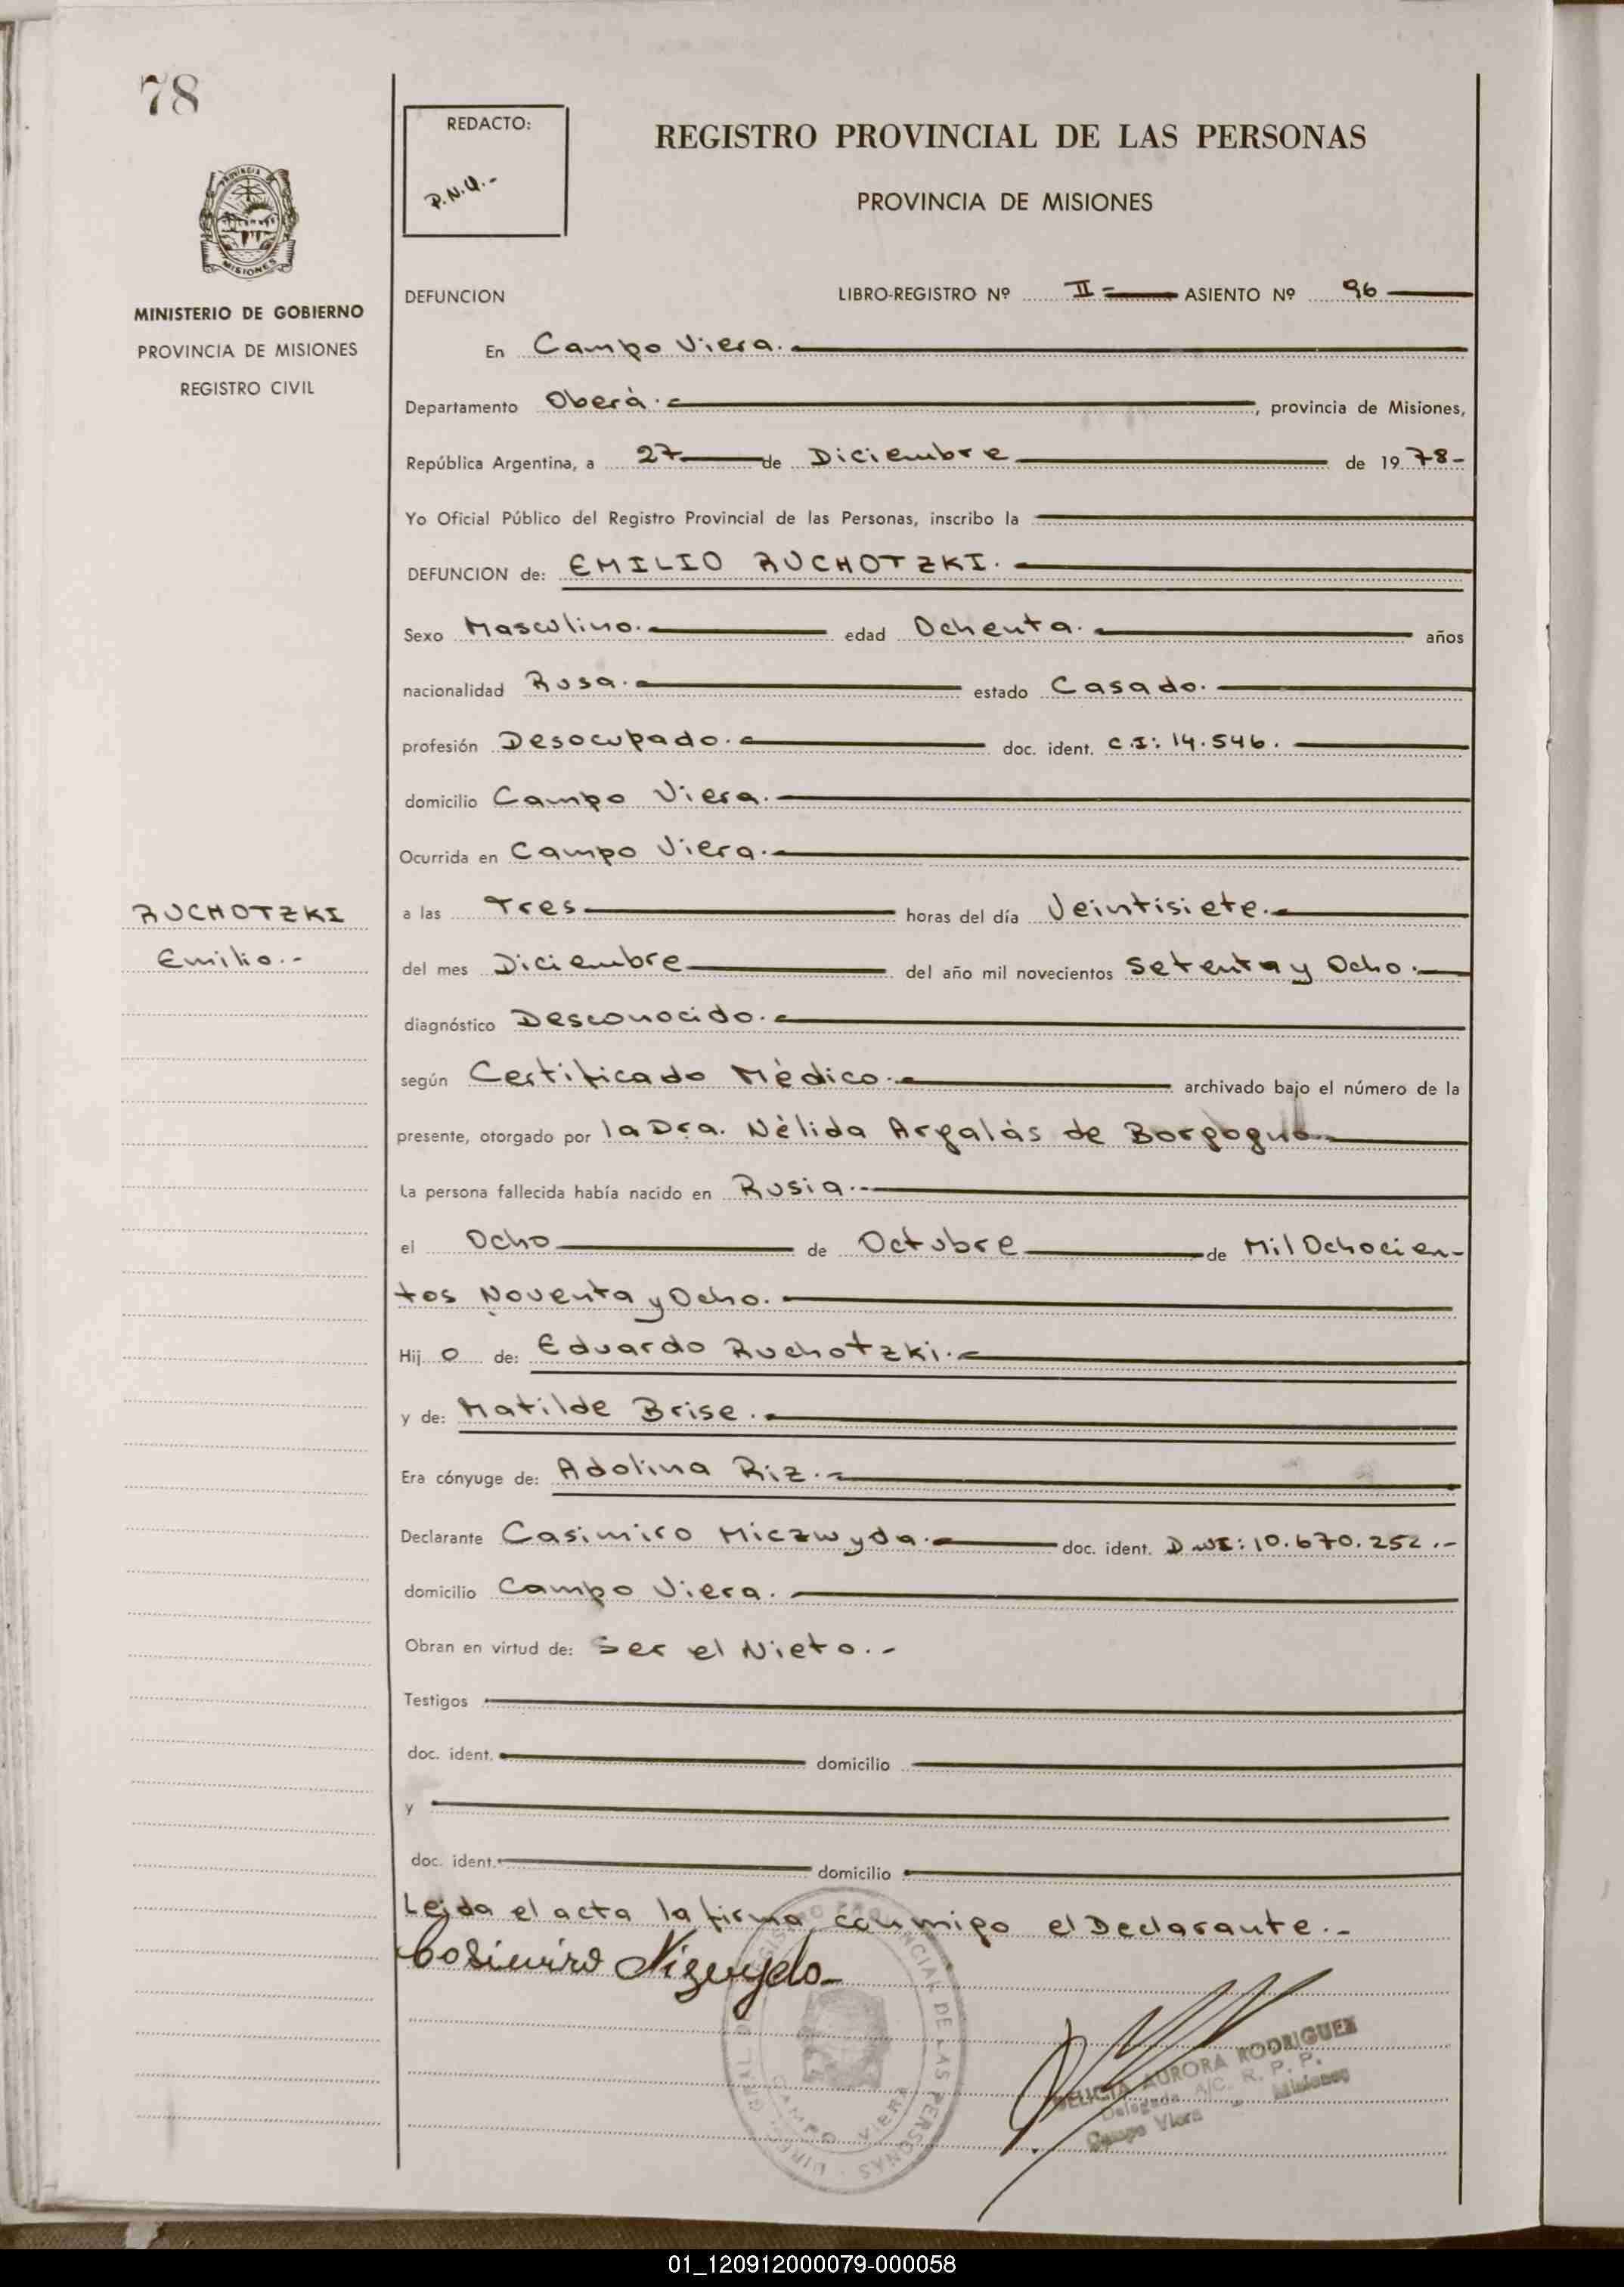 78
REDACTO:
P.N.Q.-
REGISTRO PROVINCIAL DE LAS PERSONAS
PROVINCIA DE MISIONES
PROVINCIA DE
MISIONES
MINISTERIO DE GOBIERNO
PROVINCIA DE MISIONES
REGISTRO CIVIL
DEFUNCION LIBRO-REGISTRO Nº II= ASIENTO Nº 96
En Campo Viera.
Departamento Oberà. , provincia de Misiones,
República Argentina, a 27 de Diciembre de 19 78-
Yo Oficial Público del Registro Provincial de las Personas, inscribo la
DEFUNCION de: EMILIO RUCHOTZKI.
Sexo Masculino. edad Ochenta. años
nacionalidad Rusa. estado Casado.
profesión Desocupado. doc. ident. C.I: 14.546.
domicilio Campo Viera.
Ocurrida en Campo Viera.
RUCHOTZKI
Emilio.-
a las Tres horas del día Veintisiete.
del mes Diciembre del año mil novecientos Setenta y Ocho.
diagnóstico Desconocido.
según Certificado Mèdico. archivado bajo el número de la
presente, otorgado por la Dra. Nèlida Argalàs de Borgogno
La persona fallecida había nacido en Rusia.
el Ocho de Octubre de Mil Ochocien-
tos Noventa y Ocho.
Hij o de: Eduardo Ruchotzki.
y de: Matilde Brise.
Era cónyuge de: Adolina Riz.
Declarante Casimiro Miczwyda. doc. ident. DNI: 10.670.252.-
domicilio Campo Viera.
Obran en virtud de: Ser el Nieto.-
Testigos
doc. ident. domicilio
y
doc. ident. domicilio
Leida el acta la firma conmigo el Declarante.-
Casimiro
CAMPO VIERA
DELICIA AURORA RODRIGUEZ
Delegada A/C. R. P. P.
Campo Viera - Misiones
01_120912000079-000058